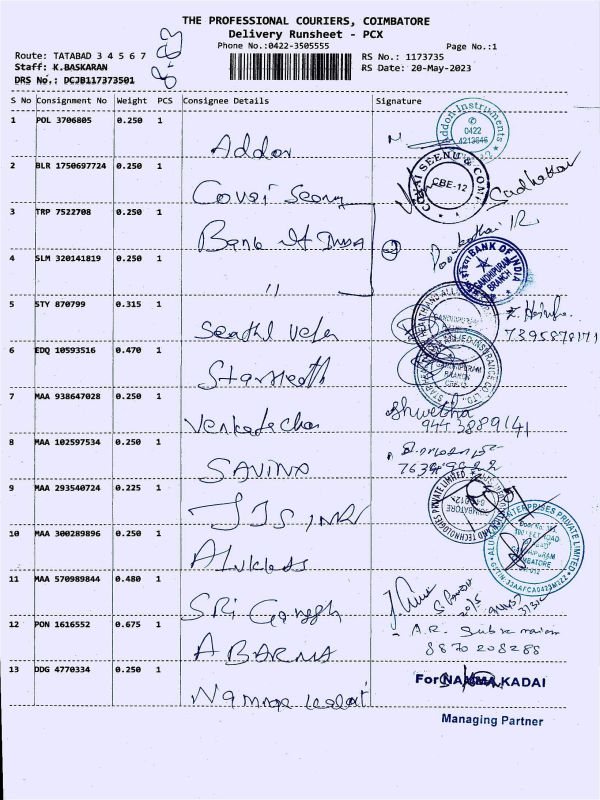 THE PROFESSIONAL COURIERS, COIMBATORE
Delivery Runsheet - PCX
Phone No.:0422-3505555
Page No.:1
Route: TATABAD 3 4 5 6 7
RS No.: 1173735
Staff: K.BASKARAN
RS Date: 20-May-2023
DRS No.: DCJB117373501
S No Consignment No Weight PCS Consignee Details Signature
1 POL 3706805 0.250 1
Addon
Addon Instruments
0422
2 BLR 1750697724 0.250 1
Covai Seenu
COVAI SEENU & COM
CBE-12
Sudhakar
3 TRP 7522708 0.250 1
Bank of India
4 SLM 320141819 0.250 1
"
BANK OF INDIA
GANDHIPURAM
BRANCH
5 STY 870799 0.315 1
7395878171
6 EDQ 10593516 0.470 1
Star Health
STAR HEALTH AND ALLIED INSURANCE CO. LTD.
GANDHIPURAM
BRANCH
7 MAA 938647028 0.250 1
Shwetha
9443889141
8 MAA 102597534 0.250 1
9 MAA 293540724 0.225 1
10 MAA 300289896 0.250 1
ENTERPRISES PRIVATE LIMITED
11 MAA 570989844 0.480 1
SRi Ganesh
12 PON 1616552 0.675 1
A BARNA
A.R. Subramaniam
8870208288
13 DDG 4770334 0.250 1
For NAMMA KADAI
Managing Partner